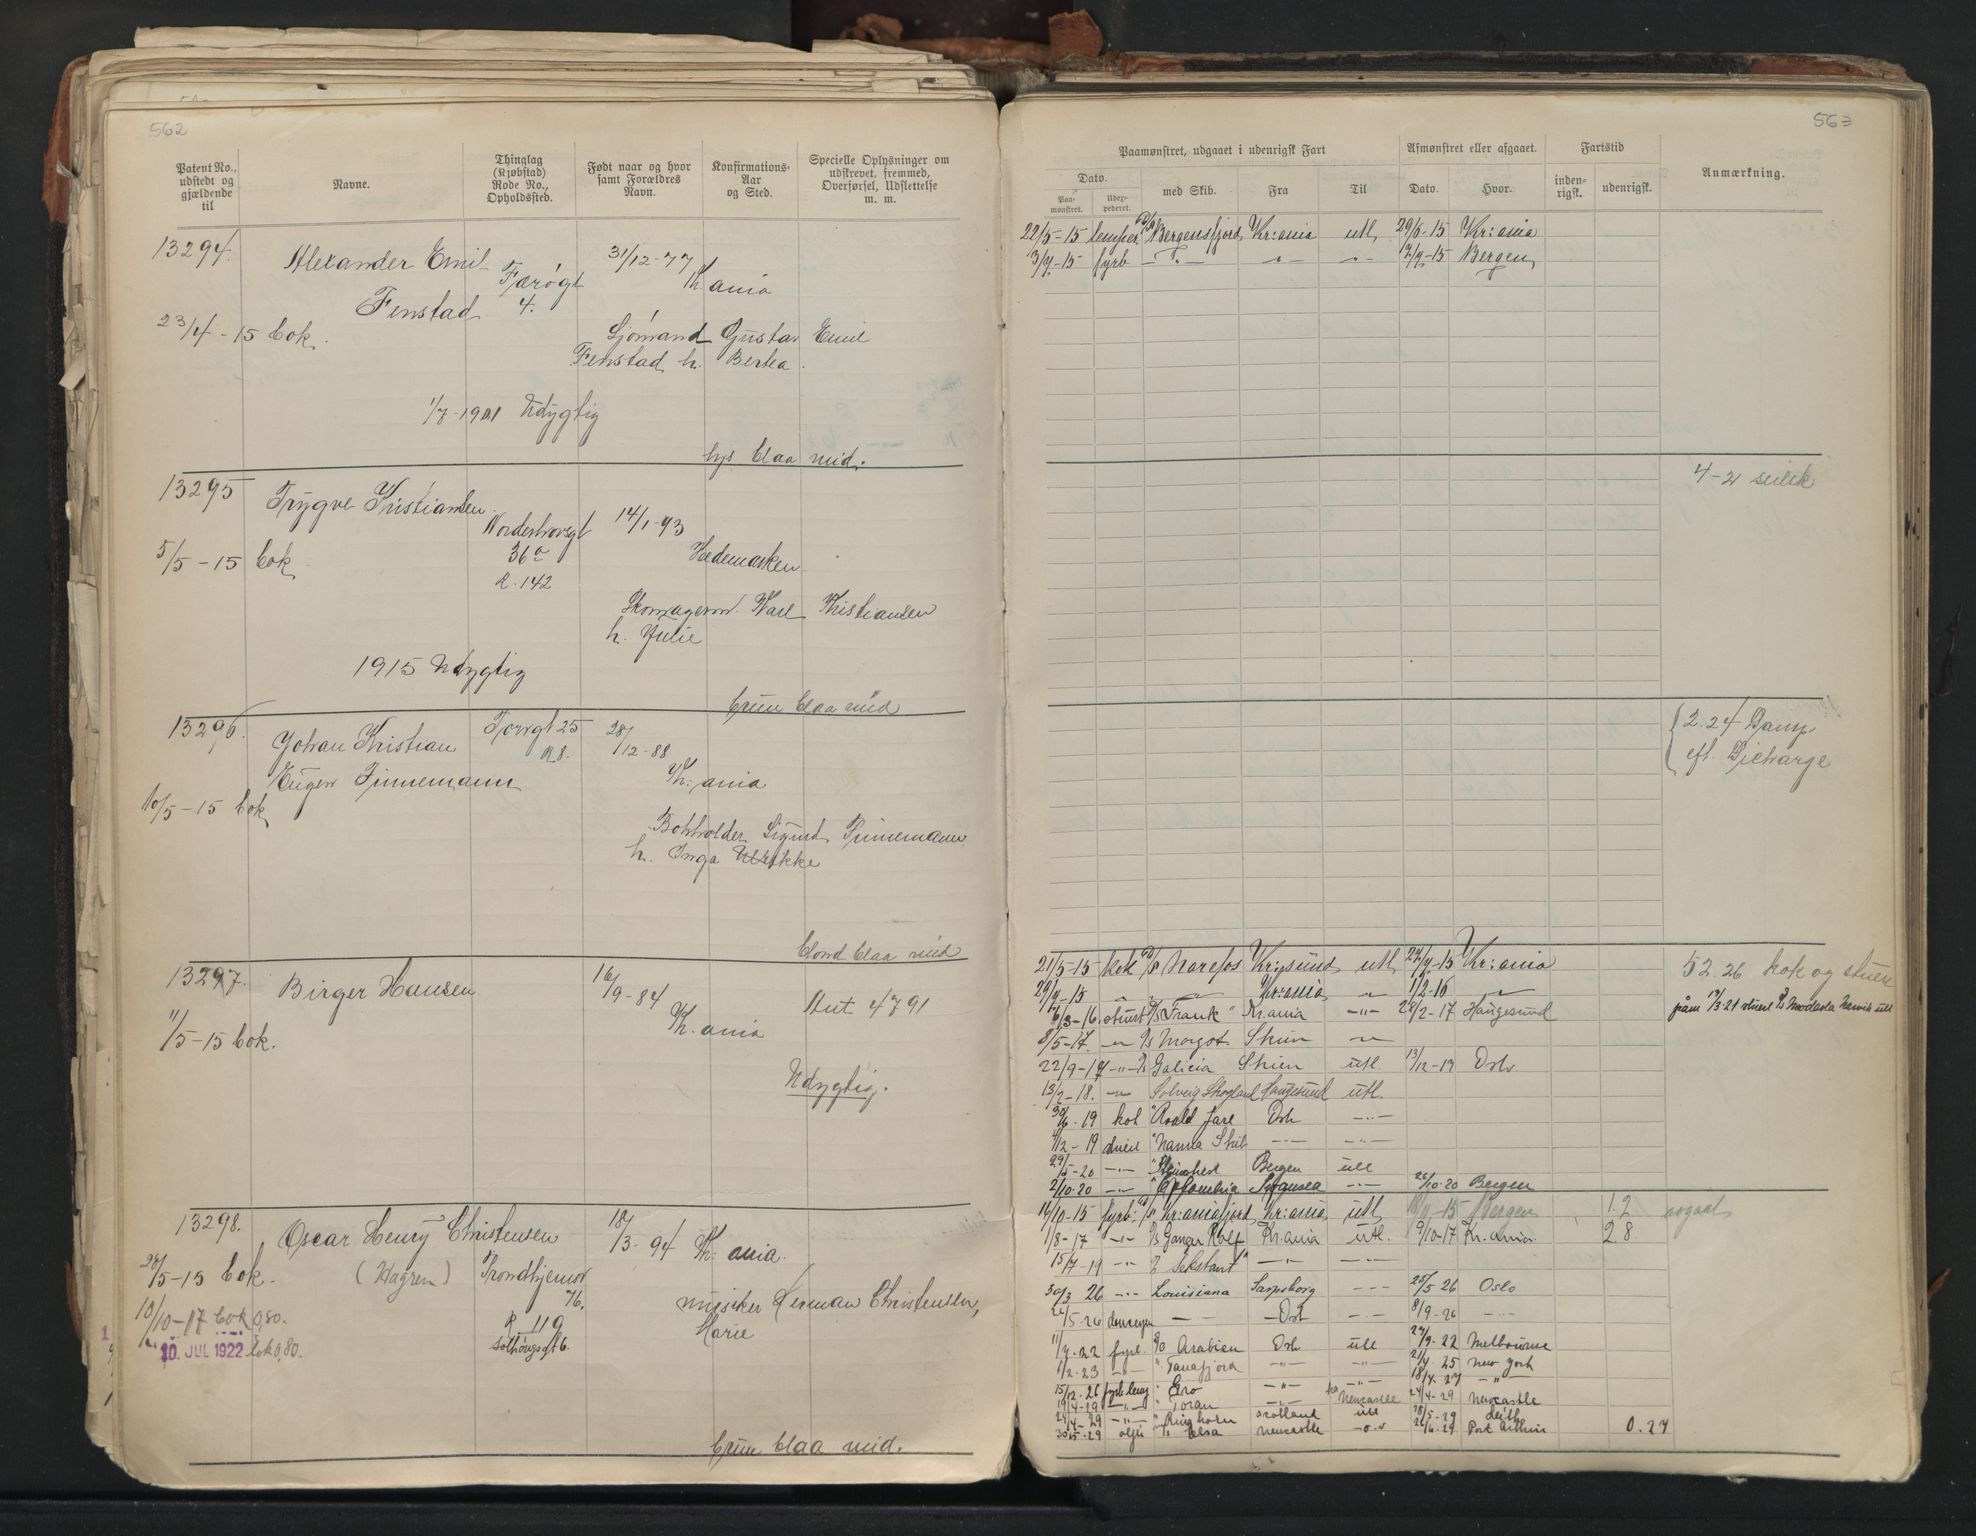 562
Patent No., udstedt og gjældende til
Navne.
Thinglag (Kjøbstad) Rode No., Opholdssted.
Født naar og hvor samt Forældres Navn.
Konfirmations-Aar og Sted.
Specielle Oplysninger om udskrevet, fremmed, Overførsel, Udslettelse m. m.
13294. Alexander Emil Færøgt 31/12-77
Fenstad 4. Kr.ania
23/4-15 Cok. Sjømand Gustav Emil
Fenstad h. Berta.
1/7-1901 Udygtig
lys blaa mid.
13295 Trygve Kristiansen
Nordestrovegt 14/1-93
5/5-15 Cok 36a Hedemarken
R.142
Skomagerm. Karl Kristiansen
h. Julie
1915 Udygtig
brun blaa mid
13296. Johan Kristian Torvgt 25 28/12-88
Eugen Finnemann R8. Kr:ania
10/5-15 Cok
Bokholder Sigurd Finnemann
h. Inga Ulrikke
blond blaa mid
13297. Birger Hansen 16/9-84 Aut 4791
11/5-15 Cok. Kr.ania
Udygtig.
13298. Oscar Henry Christensen 18/3-94 Kr:ania.
28/5-15 Cok. (Hagren) Trondhjemsv 76.
10/10-17 Cok 0,80. Musiker Herman Christensen,
R 119 Marie
10. JUL 1922 Cok 0,80. Solhøugsgt 6.
brun blaa mid.
563
Paamønstret, udgaaet i udenrigsk Fart
Afmønstret eller afgaaet.
Fartstid
Anmærkning.
Dato.
Paa-mønstret.
Udex-pederet.
med Skib.
Fra
Til
Dato.
Hvor.
inden-rigsk.
udenrigsk.
22/5-15 lemper D/S Bergensfjord Kr:ania utl 29/6-15 Kr:ania
3/7-15 fyrb —"— " " 12/7-15 Bergen
4-21 seilsk
2.24 Damp.
efl. Dicharge
21/5-15 kok D/S Marefos Kr:sund utl 24/7-15 Kr:ania
29/7-15 " " Kr:ania " 1/2-16 "
52.26 kok og stuert
6/3-16. stuert D/S Frank Kr.ania —"— 28/2-17 Haugesund
8/5-17. —"— Margot Skien —"—
22/9-17 —"— Galicia Skien utl. 13/12-17 Oslo
13/2-18. —"— Solveig Skogland Haugesund utl.
30/6.19 kok " Roald Jarl Oslo —"—
4/12-19 stuert " Nanna Skib —"— —"—
29/5-20 —"— Bergen utl
2/10.20 —"— Swansea —"— 26/10.20 Bergen
14/10-15 fyrb: D/S Kr:aniafjord Kr:ania utl Bergen 1.2
1/8-17 —"— Ganger Rolf Kr.ania utl. 9/10-17 Kr.ania. 2 8.
15/7-19 —"— Sekstant —"— —"—
30/3 26 —"— Louisiana Sarpsborg —"— 25/5 26 Oslo
26/5-26 donkeym — — Oslo —"— 8/9-26 —"—
11/7.22 fyrb. Arabien Oslo utl 27/9.22 Melbourne
1/2-23 —"— " Tanafjord —"— —"— 21/4.25 New York
15/12.26 fyrb lemp " Gro —"— —"— 18/4.27 —"—
—"— " Toran fra Newcastle 24/4-29 Newcastle
24/4-29 —"— " Kinghorn Scotland utl 28/5-29 Leith
30/5-29 " Elsa Newcastle 26/6-29 Port Arthur 0.27